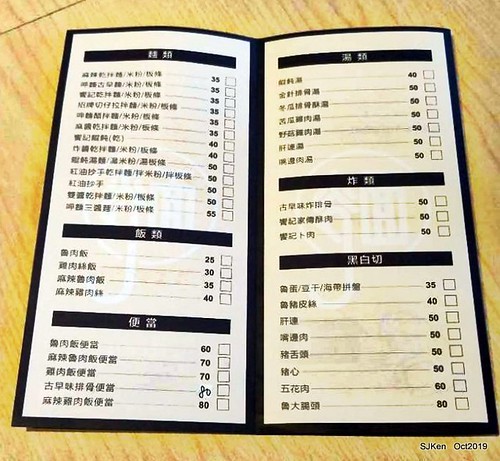 麵類
麻辣乾拌麵/米粉/板條 35
呷麵古早麵/米粉/板條 35
饗記乾拌麵/米粉/板條 35
招牌切仔拉拌麵/米粉/板條 35
呷麵醋拌麵/米粉/板條 35
麻醬乾拌麵/米粉/板條 35
饗記餛飩(乾) 40
炸醬乾拌麵/米粉/板條 50
餛飩湯麵/湯米粉/湯板條 50
紅油抄手乾拌麵/拌米粉/拌板條 50
紅油抄手 50
雙醬乾拌麵/米粉/板條 50
呷麵三醬麵/米粉/板條 55
飯類
魯肉飯 25
雞肉絲飯 30
麻辣魯肉飯 35
麻辣雞肉絲 40
便當
魯肉飯便當 60
麻辣魯肉飯便當 70
雞肉飯便當 70
古早味排骨便當 80
麻辣雞肉飯便當 80
湯類
餛飩湯 40
金針排骨湯 50
冬瓜排骨酥湯 50
苦瓜雞肉湯 50
野菇雞肉湯 50
肝連湯 50
嘴邊肉湯 50
炸類
古早味炸排骨 50
饗記家傳酥肉 50
饗記卜肉 50
黑白切
魯蛋/豆干/海帶拼盤 35
魯豬皮絲 40
肝連 50
嘴邊肉 50
豬舌頭 50
豬心 50
五花肉 60
魯大腸頭 80
SJKen Oct2019